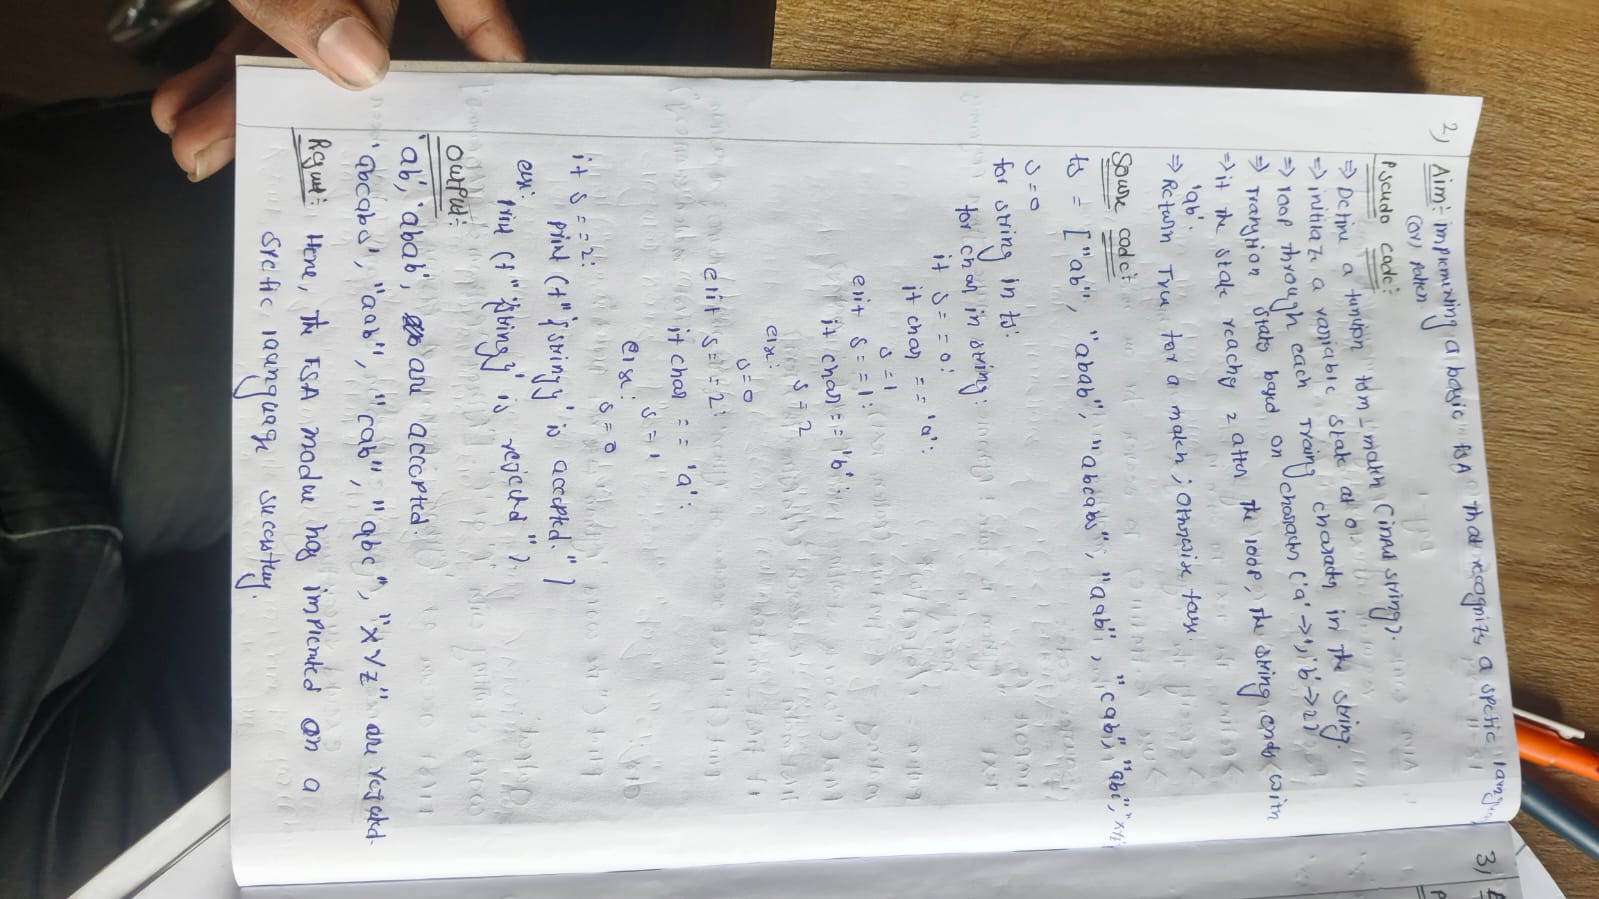 2) Aim:- implementing a basic FSA that recognizes a specific
(or) pattern
Pseudo code:-
=> Define a function fsm_match (input string).
=> initialize a variable state at 0.
=> loop through each character in the string.
=> Transition states based on character ('a'->1, 'b'->2)
=> if the state reaches 2 after the loop, the string ends with
'ab'.
=> Return True for a match; otherwise false.
Source code:-
ts = ["ab", "abab", "abcabs", "aab", "cab", "abc", "xyz"
s=0
for string in ts:
for char in string:
if s==0:
if char == 'a':
s=1
elif s==1:
if char == 'b':
s=2
else:
s=0
elif s==2:
if char == 'a':
s=1
else:
s=0
if s==2:
print (f"'{string}' is accepted.")
else:
print (f"'{string}' is rejected")
output:-
'ab', 'abab', are accepted.
'abcabs', "aab", "cab", "abc", "xyz" are rejected.
Result: Here, the FSA has on a
language
3)